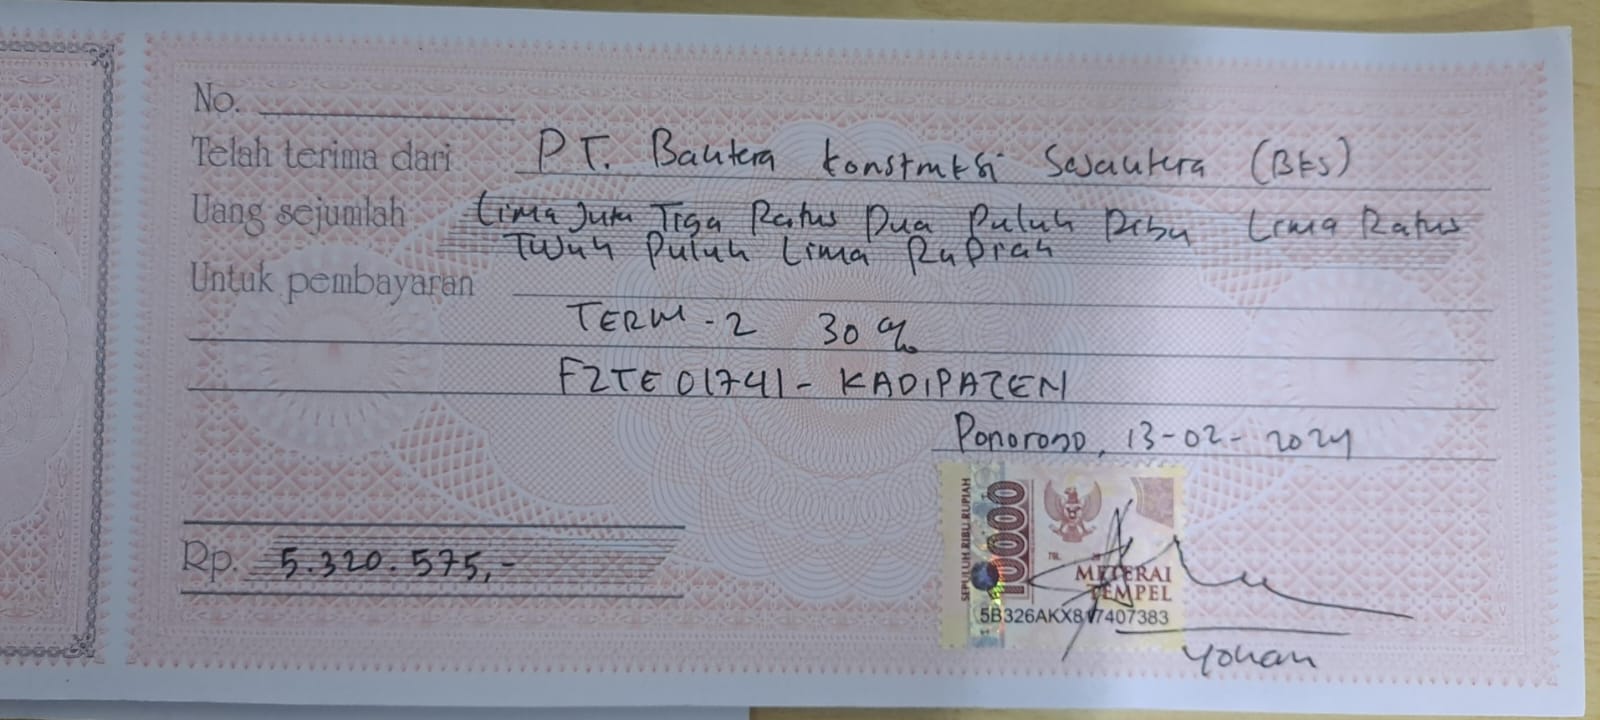 No.
Telah terima dari PT. Bautera Konstruksi Sejautera (BKS)
Uang sejumlah Lima Juta Tiga Ratus Dua Puluh Ribu Lima Ratus
Tujuh Puluh Lima Rupiah
Untuk pembayaran
TERM - 2 30 %
FZTE01741 - KADIPATEN
Ponorogo, 13-02-2024
SEPULUH RIBU RUPIAH
10000
TGL. 20
METERAI
TEMPEL
5B326AKX817407383
Rp. 5.320.575,-
Yohan